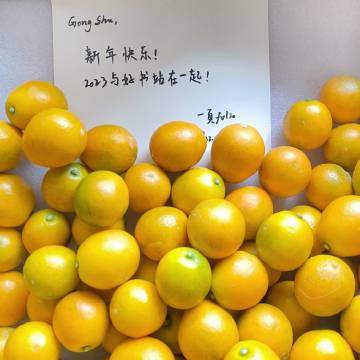 Gong Shu,
新年快乐!
2023与好书站在一起!
一頁folio